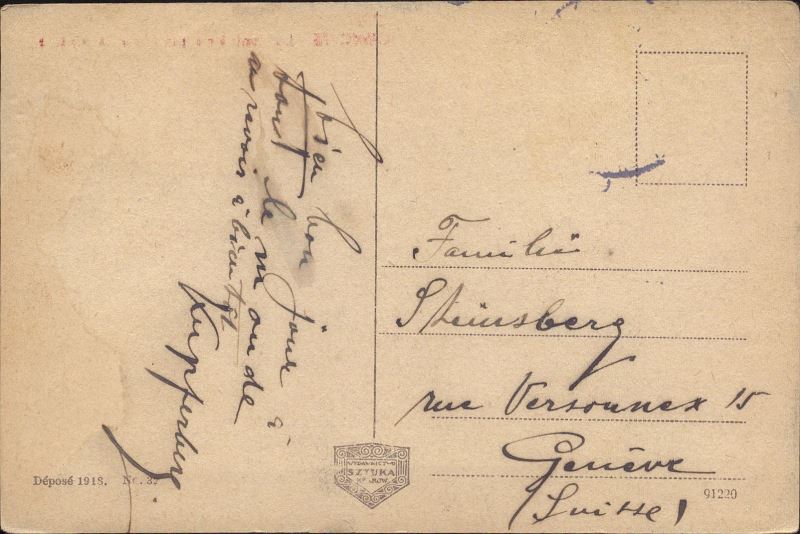 bien bon jour à
tout le monde
a revoir à bientôt
Kupferberg
Familie
Steinsberg
rue Versonnex 15
Genève
(Suisse)
Déposé 1918. No. 3
WYDAWNICTWO
SZTUKA
KRAKOW
91220